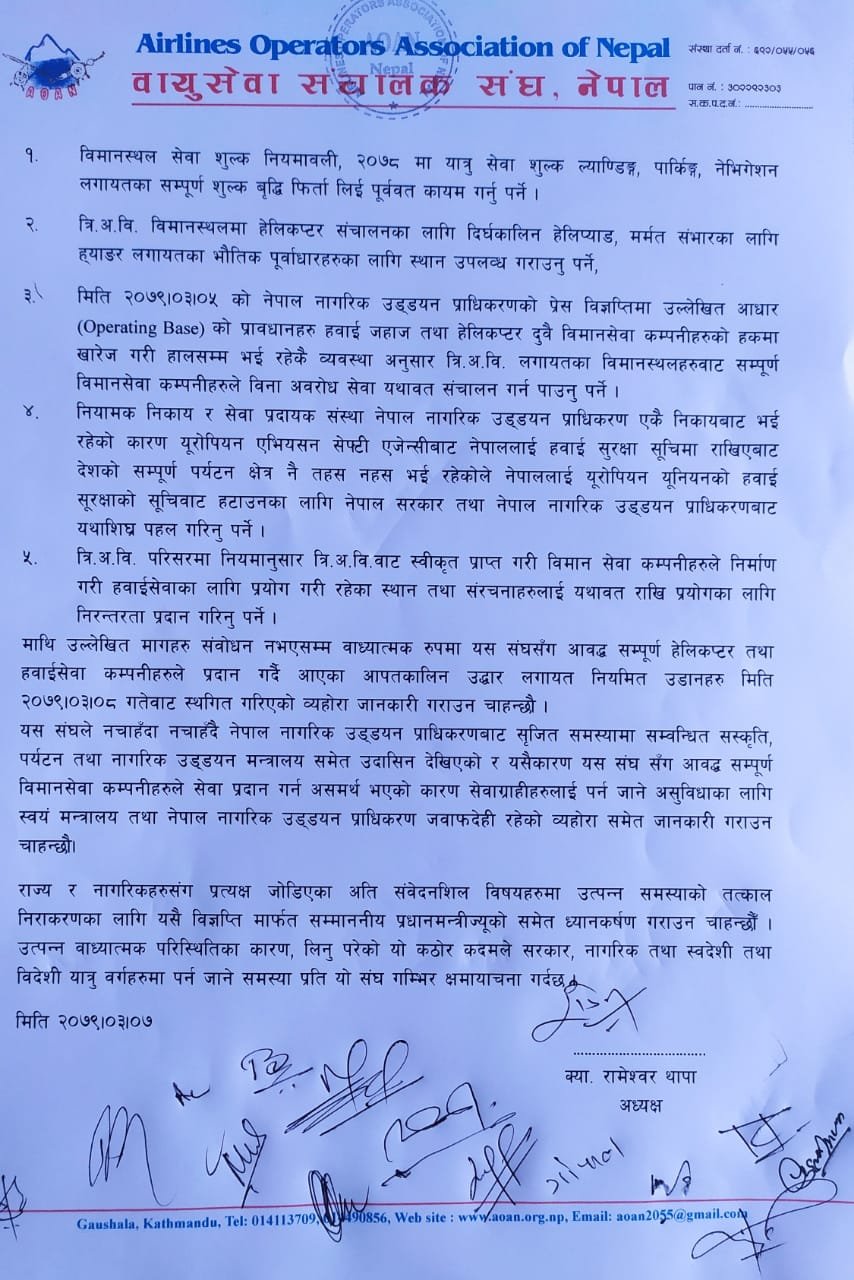 Airlines Operators Association of Nepal
संस्था दर्ता नं. : ६१०/०५५/०५६
वायुसेवा संचालक संघ, नेपाल
पान नं. : ३०२२१२३०३
स.क.प.द.नं.: ........................
AOAN
१. विमानस्थल सेवा शुल्क नियमावली, २०७८ मा यात्रु सेवा शुल्क ल्याण्डिङ्ग, पार्किङ्ग, नेभिगेशन
लगायतका सम्पूर्ण शुल्क बृद्धि फिर्ता लिई पूर्ववत कायम गर्नु पर्ने ।
२. त्रि.अ.वि. विमानस्थलमा हेलिकप्टर संचालनका लागि दिर्घकालिन हेलिप्याड, मर्मत संभारका लागि
ह्याङर लगायतका भौतिक पूर्वाधारहरुका लागि स्थान उपलब्ध गराउनु पर्ने,
३. मिति २०७९।०३।०५ को नेपाल नागरिक उड्डयन प्राधिकरणको प्रेस विज्ञप्तिमा उल्लेखित आधार
(Operating Base) को प्रावधानहरु हवाई जहाज तथा हेलिकप्टर दुवै विमानसेवा कम्पनीहरुको हकमा
खारेज गरी हालसम्म भई रहेकै व्यवस्था अनुसार त्रि.अ.वि. लगायतका विमानस्थलहरुवाट सम्पूर्ण
विमानसेवा कम्पनीहरुले विना अवरोध सेवा यथावत संचालन गर्न पाउनु पर्ने ।
४. नियामक निकाय र सेवा प्रदायक संस्था नेपाल नागरिक उड्डयन प्राधिकरण एकै निकायबाट भई
रहेको कारण यूरोपियन एभियसन सेफ्टी एजेन्सीबाट नेपाललाई हवाई सुरक्षा सूचिमा राखिएबाट
देशको सम्पूर्ण पर्यटन क्षेत्र नै तहस नहस भई रहेकोले नेपाललाई यूरोपियन यूनियनको हवाई
सुरक्षाको सूचिवाट हटाउनका लागि नेपाल सरकार तथा नेपाल नागरिक उड्डयन प्राधिकरणबाट
यथाशिघ्र पहल गरिनु पर्ने ।
५. त्रि.अ.वि. परिसरमा नियमानुसार त्रि.अ.वि.वाट स्वीकृत प्राप्त गरी विमान सेवा कम्पनीहरुले निर्माण
गरी हवाईसेवाका लागि प्रयोग गरी रहेका स्थान तथा संरचनाहरुलाई यथावत राखि प्रयोगका लागि
निरन्तरता प्रदान गरिनु पर्ने ।
माथि उल्लेखित मागहरु संवोधन नभएसम्म वाध्यात्मक रुपमा यस संघसँग आवद्ध सम्पूर्ण हेलिकप्टर तथा
हवाईसेवा कम्पनीहरुले प्रदान गर्दै आएका आपतकालिन उद्धार लगायत नियमित उडानहरु मिति
२०७९।०३।०८ गतेवाट स्थगित गरिएको व्यहोरा जानकारी गराउन चाहन्छौ ।
यस संघले नचाहँदा नचाहँदै नेपाल नागरिक उड्डयन प्राधिकरणबाट सृजित समस्यामा सम्वन्धित संस्कृति,
पर्यटन तथा नागरिक उड्डयन मन्त्रालय समेत उदासिन देखिएको र यसैकारण यस संघ सँग आवद्ध सम्पूर्ण
विमानसेवा कम्पनीहरुले सेवा प्रदान गर्न असमर्थ भएको कारण सेवाग्राहीहरुलाई पर्न जाने असुविधाका लागि
स्वयं मन्त्रालय तथा नेपाल नागरिक उड्डयन प्राधिकरण जवाफदेही रहेको व्यहोरा समेत जानकारी गराउन
चाहन्छौ।
राज्य र नागरिकहरुसंग प्रत्यक्ष जोडिएका अति संवेदनशिल विषयहरुमा उत्पन्न समस्याको तत्काल
निराकरणका लागि यसै विज्ञप्ति मार्फत सम्माननीय प्रधानमन्त्रीज्यूको समेत ध्यानकर्षण गराउन चाहन्छौँ ।
उत्पन्न वाध्यात्मक परिस्थितिका कारण, लिनु परेको यो कठोर कदमले सरकार, नागरिक तथा स्वदेशी तथा
विदेशी यात्रु वर्गहरुमा पर्न जाने समस्या प्रति यो संघ गम्भिर क्षमायाचना गर्दछ ।
मिति २०७९।०३।०७
क्या. रामेश्वर थापा
अध्यक्ष
Gaushala, Kathmandu, Tel: 014113709, Web site : www.aoan.org.np, Email: aoan2055@gmail.com